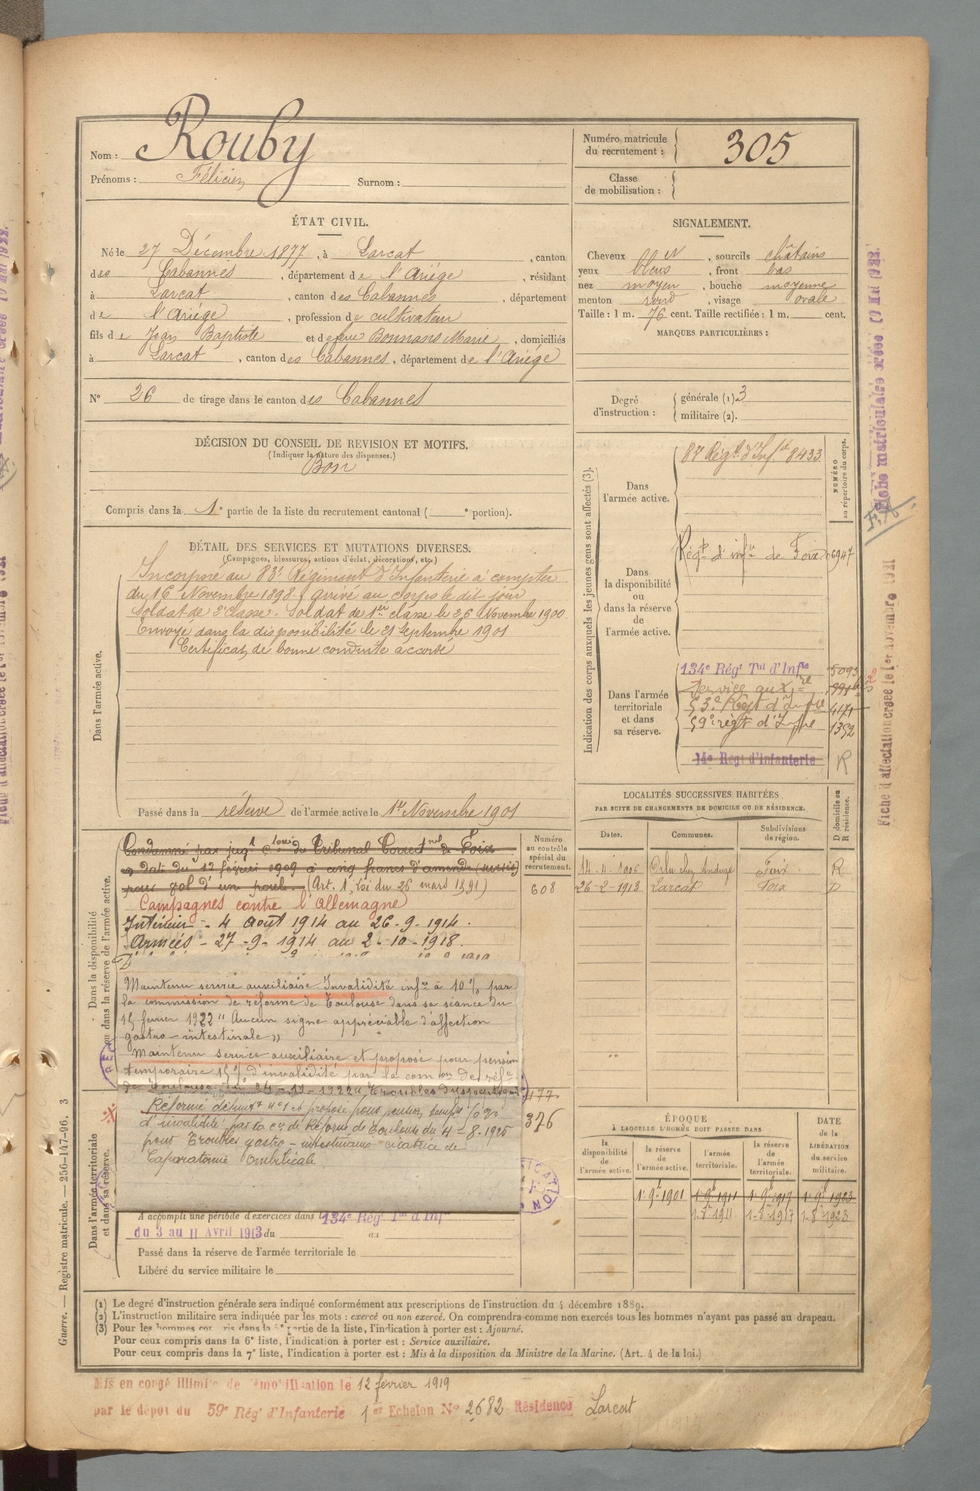 Nom : Rouby
Prénoms : Félicien Surnom :
Numéro matricule du recrutement : 305
Classe de mobilisation :
ÉTAT CIVIL.
Né le 27 Décembre 1877, à Larcat, canton
des Cabannes, département de l'Ariége, résidant
à Larcat, canton des Cabannes, département
de l'Ariége, profession de cultivateur
fils de Jean Baptiste et de feue Bonnans Marie, domiciliés
à Larcat, canton des Cabannes, département de l'Ariége
N° 26 de tirage dans le canton des Cabannes
DÉCISION DU CONSEIL DE REVISION ET MOTIFS.
(Indiquer la nature des dispenses.)
Bon
Compris dans la 1e partie de la liste du recrutement cantonal ( e portion).
SIGNALEMENT.
Cheveux , sourcils châtains
yeux bleus , front bas
nez moyen , bouche moyenne
menton rond , visage ovale
Taille : 1 m. 76 cent. Taille rectifiée : 1 m. cent.
MARQUES PARTICULIÈRES :
Degré d'instruction : générale (1) 3
militaire (2).
DÉTAIL DES SERVICES ET MUTATIONS DIVERSES.
(Campagnes, blessures, actions d'éclat, décorations, etc.)
Dans l'armée active.
Incorporé au 83e Régiment d'Infanterie à compter
du 16 Novembre 1898, arrivé au corps le dit jour
soldat de 2e classe. Soldat de 1ère classe le 26 Novembre 1900
Envoyé dans la disponibilité le 21 Septembre 1901
Certificat de bonne conduite accordé
Passé dans la réserve de l'armée active le 1er Novembre 1901
Indication des corps auxquels les jeunes gens sont affectés (3).
NUMÉRO au répertoire du corps.
Dans l'armée active.
Régt d'Infie 8433
Dans la disponibilité ou dans la réserve de l'armée active.
Régt d'infie de Foix 06947
Dans l'armée territoriale et dans sa réserve.
134e Régt Tal d'Infie 5093
Service auxre
59e régt d'Infie 1352
14e Régt d'Infanterie R
LOCALITÉS SUCCESSIVES HABITÉES
PAR SUITE DE CHANGEMENTS DE DOMICILE OU DE RÉSIDENCE.
Dates. Communes. Subdivisions de région. D domicile ou R résidence.
Foix R
26-2-1913 Larcat Foix D
Dans la disponibilité ou dans la réserve de l'armée active.
Numéro au contrôle spécial du recrutement.
608
Condamné par jugt du Tribunal Correctnel de Foix
en date du 12 février 1909 à cinq francs d'amende (sursis)
pour vol d'un poule. (Art. 1, loi du 26 mars 1891)
Campagnes contre l'Allemagne
Intérieur - 4 août 1914 au 26-9-1914.
Armées - 27-9-1914 au 2-10-1918.
Maintenu service auxiliaire Invalidité infre à 10 % par
la commission de réforme de Toulouse dans sa séance du
15 février 1922 "Aucun signe appréciable d'affection
gastro-intestinale"
Maintenu service auxiliaire et proposé pour pension
temporaire 15% d'invalidité par la comon de réfe
Réformé définit n°1 et proposé pour pension
d'invalidité par la Con de Réforme de Toulouse du 4-8-1925
pour Troubles gastro-intestinaux cicatrice de
Laparatomie Ombilicale
477
376
Dans l'armée territoriale et dans sa réserve.
A accompli une période d'exercices dans 134e Régt Tal d'Infie
du 3 au 11 Avril 1913 du au
Passé dans la réserve de l'armée territoriale le
Libéré du service militaire le
ÉPOQUE
A LAQUELLE L'HOMME DOIT PASSER DANS
DATE de la LIBÉRATION du service militaire.
la disponibilité de l'armée active. la réserve de l'armée active. l'armée territoriale. la réserve de l'armée territoriale.
1-9-1901 1-9-1911 1-9-1917 1-9-1923
1-8-1911 1-8-1917 1-8-1923
(1) Le degré d'instruction générale sera indiqué conformément aux prescriptions de l'instruction du 4 décembre 1889.
(2) L'instruction militaire sera indiquée par les mots : exercé ou non exercé. On comprendra comme non exercés tous les hommes n'ayant pas passé au drapeau.
(3) Pour les hommes compris dans la partie de la liste, l'indication à porter est : Ajourné.
Pour ceux compris dans la 6e liste, l'indication à porter est : Service auxiliaire.
Pour ceux compris dans la 7e liste, l'indication à porter est : Mis à la disposition du Ministre de la Marine. (Art. 4 de la loi.)
Mis en congé illimité de démobilisation le 12 février 1919
par le dépot du 59e Régt d'Infanterie 1er Echelon N° 2682 Résidence Larcat
Guerre. — Registre matricule. — 256-147-96. 3
Fiche d'affectation créée le 1er novembre 1921